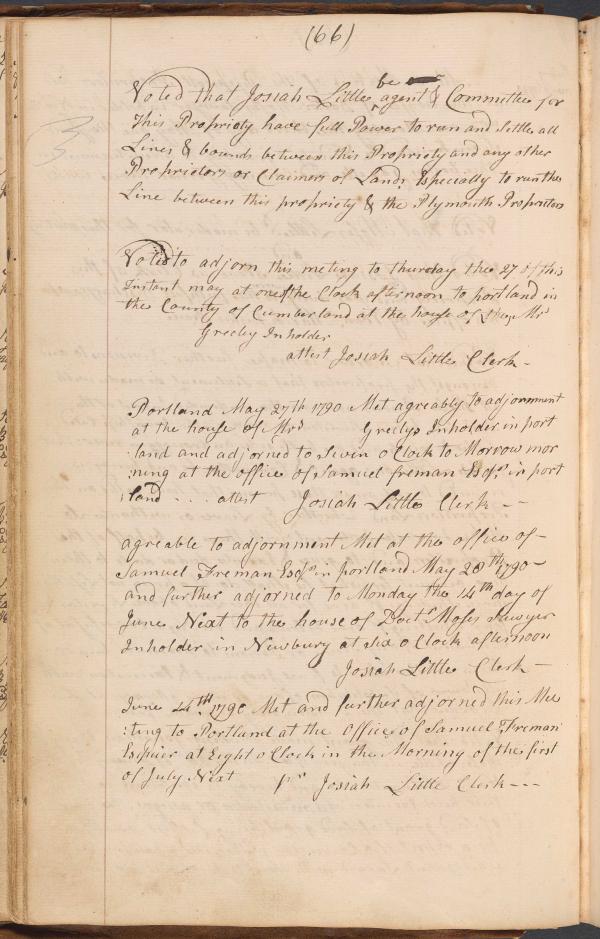 (66)
Voted that Josiah Little be agent & Committee for
This Propriety have full Power to run and settle all
Lines & bounds between this Propriety and any other
Proprietors or Claimers of Lands Especially to run the
Line between this propriety & the Plymouth Proprietors
Voted to adjorn this meting to thursday the 27 of this
Instant may at one of the Clock afternoon to portland in
the County of Cumberland at the house of Mrs
Greeley Inholder
attest Josiah Little Clerk -
Portland May 27th 1790 Met agreably to adjornment
at the house of Mrs Greelys Inholder in port
:land and adjorned to Seven o Clock to Morrow mor
:ning at the office of Samuel freman Esqr. in port
:land - . . . attest Josiah Little Clerk - -
agreable to adjornment Met at the office of -
Samuel Freman Esqr in portland May 28th 1790 -
and further adjorned to Monday the 14th day of
June Next to the house of Doct Moses Sawyer
Inholder in Newbury at Six o Clock afternoon
Josiah Little Clerk -
June 14th 1790 Met and further adjorned this Mee
:ting to Portland at the Office of Samuel Freman
Esquier at Eight o Clock in the Morning of the first
of July Next pr Josiah Little Clerk - - -